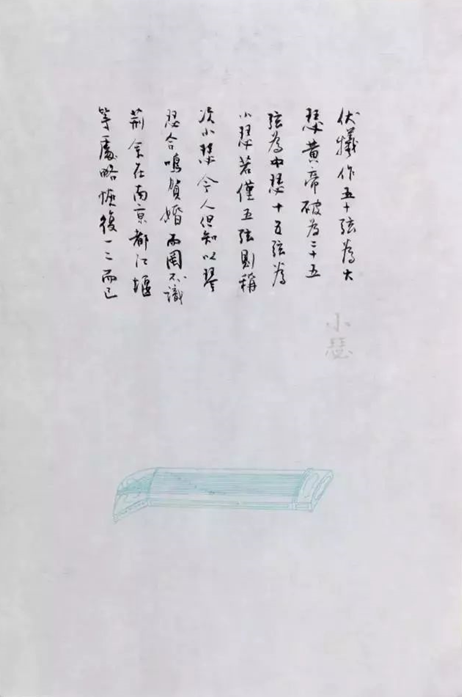 伏犧作五十弦為大
瑟黃帝破為二十五
弦為中瑟十五弦為
小瑟若僅五弦則稱
次小瑟今人但知以琴
瑟合鳴賀婚而罔不識
余在南京都江堰
等處略恢復一二而已
小瑟